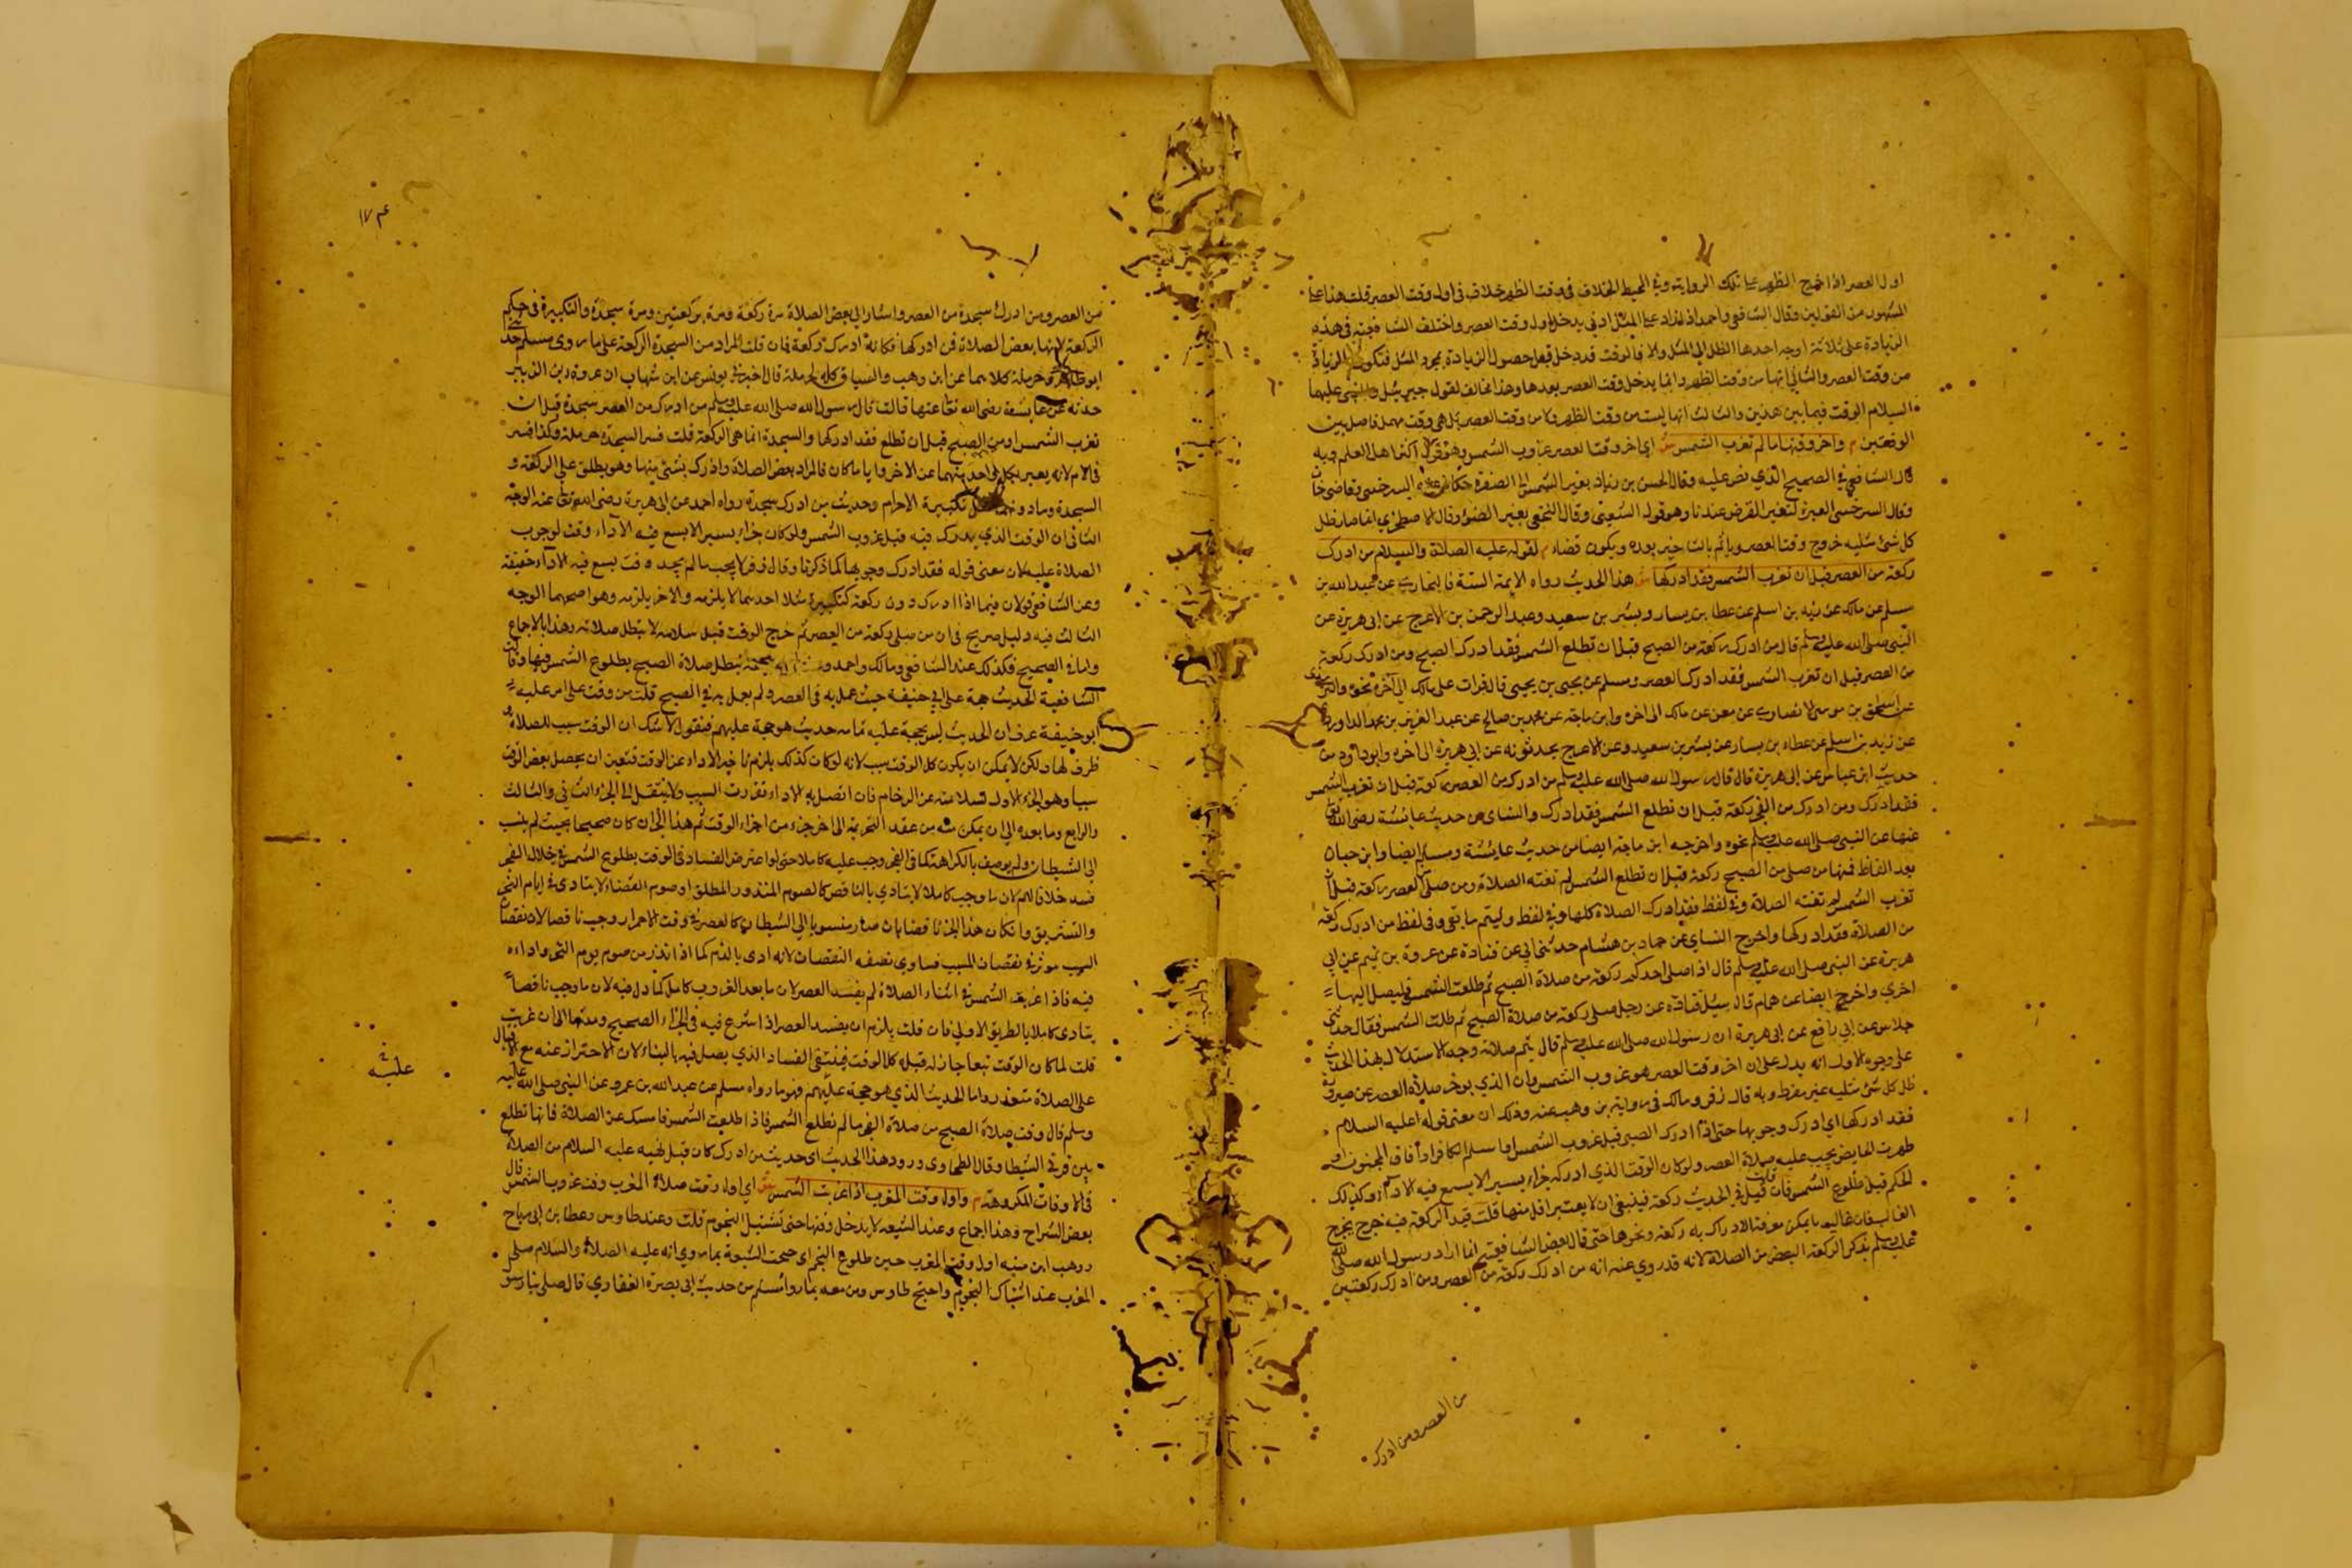 اول العصر اذا خرج الظهر على تلك الرواية وفي المحيط الخلاف في وقت الظهر خلاف في اول وقت العصر قلت هذا على
المشهور من القولين وقال الشافعي واحمد اذا زاد على المثل ادنى يدخل اول وقت العصر واختلف الشافعية في هذه
الزيادة على ثلاثة اوجه احدها الظل الى المثل والا فالوقت قد دخل قبل حصول الزيادة بمجرد المثل فتكون الزيادة
من وقت العصر والثاني انها من وقت الظهر وانما يدخل وقت العصر بعدها وهذا مخالف لقول جبريل والنبي عليهما
السلام الوقت فيما بين هذين والثالث انها ليست من وقت الظهر ولا من وقت العصر بل هي وقت مهمل فاصل بين
الوقتين م واخر وقتها ما لم تغرب الشمس ش اي اخر وقت العصر غروب الشمس وهو قول اكثر اهل العلم وبه
قال الشافعي في الصحيح الذي نص عليه وقال الحسن بن زياد بغير الشمس الى الصفرة حكاه عنه السرخسي وقاضي خان
وقال السرخسي العبرة لتغير القرص عندنا وهو قول الشعبي وقال النخعي بغير الضوء وقال الاصطخري اذا صار ظل
كل شئ مثليه خرج وقت العصر وياثم بالتاخير بعده ويكون قضاء م لقوله عليه الصلاة والسلام من ادرك
ركعة من العصر قبل ان تغرب الشمس فقد ادركها ش هذا الحديث رواه الايمة الستة فالبخاري عن عبد الله بن
مسلم عن مالك عن زيد بن اسلم عن عطا بن يسار وبشر بن سعيد وعبد الرحمن بن الاعرج عن ابي هريرة عن
النبي صلى الله عليه وسلم قال من ادرك ركعة من الصبح قبل ان تطلع الشمس فقد ادرك الصبح ومن ادرك ركعة
من العصر قبل ان تغرب الشمس فقد ادرك العصر ومسلم عن يحيى بن يحيى قال قرات على مالك الى آخره نحوه والترمذي
عن اسحق بن موسى الانصاري عن معن عن مالك الى اخره وابن ماجة عن محمد بن صالح عن عبد العزيز بن محمد الداوردي
عن زيد بن اسلم عن عطاء بن يسار عن بشر بن سعيد وعن الاعرج يحدثونه عن ابي هريرة الى اخره وابو داود من
حديث ابن عباس عن ابي هريرة قال قال رسول الله صلى الله عليه وسلم من ادرك من العصر ركعة قبل ان تغرب الشمس
فقد ادرك ومن ادرك من الفجر ركعة قبل ان تطلع الشمس فقد ادرك والنساي من حديث عايشة رضى الله تعالى
عنها عن النبي صلى الله عليه وسلم نحوه واخرجه ابن ماجة ايضا من حديث عايشة ومسلم ايضا وابن حبان
بعد الفاظ فمنها من صلى من الصبح ركعة قبل ان تطلع الشمس لم تفته الصلاة ومن صلى العصر ركعة قبل ان
تغرب الشمس لم تفته الصلاة وفي لفظ فقد ادرك الصلاة كلها وفي لفظ وليتم ما بقى وفي لفظ من ادرك ركعة
من الصلاة فقد ادركها واخرج النساي عن حماد بن هشام حدثني ابي عن قتادة عن عروة بن تميم عن ابي
هريرة عن النبي صلى الله عليه وسلم قال اذا صلى احدكم ركعة من صلاة الصبح ثم طلعت الشمس فليصل اليها
اخرى واخرج ايضا عن همام قال سئل قتادة عن رجل صلى ركعة من صلاة الصبح ثم طلعت الشمس فقال حدثني
خلاس عن ابي رافع عن ابي هريرة ان رسول الله صلى الله عليه وسلم قال يتم صلاته وجه الاستدلال بهذا الحديث
على وجوه الاول انه يدل على ان اخر وقت العصر هو غروب الشمس وان الذي يوخر صلاة العصر عن صيرورة
ظل كل شئ مثليه غير مفرط وبه قال زفر ومالك في رواية بن وهب عنه وذلك ان معنى قوله عليه السلام
فقد ادركها اي ادرك وجوبها حتى اذا ادرك الصبي قبل غروب الشمس او اسلم الكافر او افاق المجنون او
طهرت الحايض يجب عليه صلاة العصر ولو كان الوقت الذي ادركه جزاء يسيرا لا يسع فيه الاداء وكذلك
الحكم قبل طلوع الشمس فان قلت قيل في الحديث ركعة فينبغي ان لا يعتبر اقل منها قلت قيد الركعة فيه خرج مخرج
الغالب فان غالب ما يمكن معرفة الادراك به ركعة ونحوها حتى قال بعض الشافعية انما اراد رسول الله صلى الله
عليه وسلم بذكر الركعة البعض من الصلاة لانه قد روي عنه انه من ادرك ركعة من العصر ومن ادرك ركعتين
من العصر ومن ادرك
١٧
من العصر ومن ادرك سجدة من العصر واشار الى بعض الصلاة مرة بركعة ومرة بركعتين ومرة بسجدة والتكبيرة في حكم
الركعة لانها بعض الصلاة فمن ادركها فكانه ادرك ركعة فان قلت المراد من السجدة الركعة على ما روى مسلم حدثني
ابو طاهر وحرملة كلاهما عن ابن وهب والسياق كله لحرملة قال اخبرني يونس عن ابن شهاب ان عروة بن الزبير
حدثه عن عايشة رضى الله تعالى عنها قالت قال رسول الله صلى الله عليه وسلم من ادرك من العصر سجدة قبل ان
تغرب الشمس او من الصبح قبل ان تطلع فقد ادركها والسجدة انما هي الركعة قلت فسر السجدة حرملة وكذا فسر
في الام لانه يعبر بكل واحد منهما عن الاخر وايا ما كان فالمراد بعض الصلاة وادرك بشئ منها وهو يطلق على الركعة و
السجدة وما دونهما مثل تكبيرة الاحرام وحديث من ادرك سجدة رواه احمد عن ابي هريرة رضى الله تعالى عنه الوجه
الثاني ان الوقت الذي يدرك فيه قبل غروب الشمس ولو كان جزاء يسيرا لا يسع فيه الاداء وقت لوجوب
الصلاة عليه لان معنى قوله فقد ادرك وجوبها كما ذكرنا وقال زفر لا يجب ما لم يجد وقت يسع فيه الاداء حقيقة
وعن الشافعي قولان فيما اذا ادرك دون ركعة كتكبيرة مثلا احدهما لا يلزمه والاخر يلزمه وهو اصحهما الوجه
الثالث فيه دليل صريح في ان من صلى ركعة من العصر ثم خرج الوقت قبل سلامه لا تبطل صلاته وهذا بالاجماع
واما في الصبح فكذلك عند الشافعي ومالك واحمد وعند ابي حنيفة تبطل صلاة الصبح بطلوع الشمس فيها وقالت
الشافعية الحديث حجة على ابي حنيفة حيث عمل به في العصر ولم يعمل به في الصبح قلت من وقت على اس عليه
ابو حنيفة عرف ان الحديث ليس بحجة عليه ثمامه حديث هو حجة عليهم فنقول لا شك ان الوقت سبب للصلاة و
ظرف لها ولكن لا يمكن ان يكون كل الوقت سببا لانه لو كان كذلك يلزم تاخير الاداء عن الوقت فتعين ان يجعل بعض الوقت
سببا وهو الجزء الاول لسلامته عن المزاحم فان اتصل به الاداء تقررت السببية والا ينتقل الى الجزء الثاني والثالث
والرابع وما بعده الى ان يمكن منه من عقد التحريمة الى اخر جزء من اجزاء الوقت ثم هذا الجزء ان كان صحيحا بحيث لم ينسب
الى الشيطان ولم يوصف بالكراهة كما في الفجر وجب عليه كاملا حتى لو اعترض الفساد في الوقت بطلوع الشمس في خلال الفجر
فسد خلافا لهم لان ما وجب كاملا لا يتادى بالناقص كالصوم المنذور المطلق او صوم القضاء لا يتادى في ايام النحر
والتشريق وان كان هذا الجزء ناقصا بان صار منسوبا الى الشيطان كالعصر في وقت الاحمرار وجب ناقصا لان نقصان
السبب موثر في نقصان المسبب فيتادى بصفة النقصان لانه ادى بالتزم كما اذا نذر من صوم يوم النحر واداءه
فيه فاذا غربت الشمس في اثناء الصلاة لم يفسد العصر لان ما بعد الغروب كامل فتادى فيه لان ما وجب ناقصا
يتادى كاملا بالطريق الاولى فان قلت يلزم ان يفسد العصر اذا شرع فيه في الجزاء الصحيح ومدها الى ان غربت
قلت لما كان الوقت متبعا جاز له شغله كل الوقت فينتفى الفساد الذي يصل فيه بالبناء لان الاحتراز عنه مع الاقبال
على الصلاة متعذر واما الحديث الذي هو حجة عليهم فهو ما رواه مسلم عن عبد الله بن عمرو عن النبي صلى الله عليه
وسلم قال وقت صلاة الصبح من صلاة الفجر ما لم تطلع الشمس فاذا طلعت الشمس فامسك عن الصلاة فانها تطلع
بين قرني الشيطان وقال الطحاوى ورود هذا الحديث اى حديث من ادرك كان قبل نهيه عليه السلام من الصلاة
في الاوقات المكروهة م واول وقت المغرب اذا غربت الشمس ش اي اول وقت صلاة المغرب وقت غروب الشمس قال
بعض الشراح وهذا اجماع وعند الشيعة لا يدخل وقتها حتى تشتبك النجوم قلت وعند طاوس وعطا بن ابي رباح
ووهب ابن منبه اول وقت المغرب حين طلوع النجم احتجت الشيعة بما روي انه عليه الصلاة والسلام صلى
المغرب عند اشتباك النجوم واحتج طاوس ومن معه بما رواه مسلم من حديث ابي بصرة الغفاري قال صلى بنا رسول